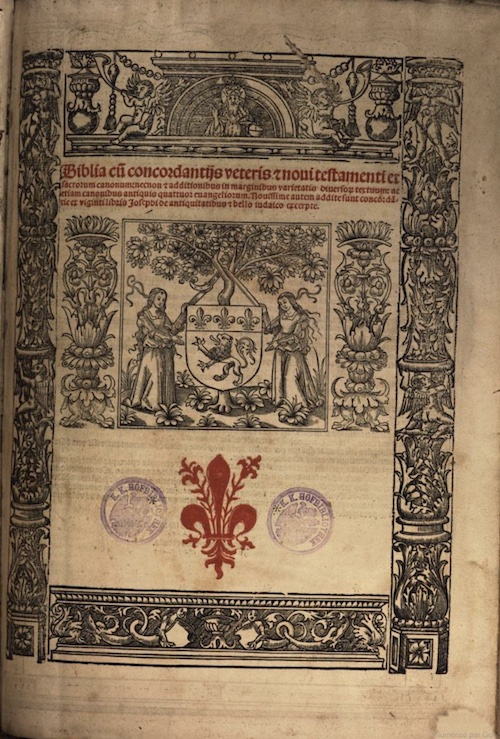 Biblia cū concordantijs veteris ⁊ noui testamenti et
sacrorum canonum: necnon ⁊ additionibus in marginibus varietatis diuersoꝝ textuum: ac
etiam canonibus antiquis quattuor euangeliorum. Nouissime autem addite sunt concordā-
tie ex viginti libris Josephi de antiquitatibus ⁊ bello iudaico excerpte.
K. K. HOFBIBLIOTHEK
K. K. HOFBIBLIOTHEK